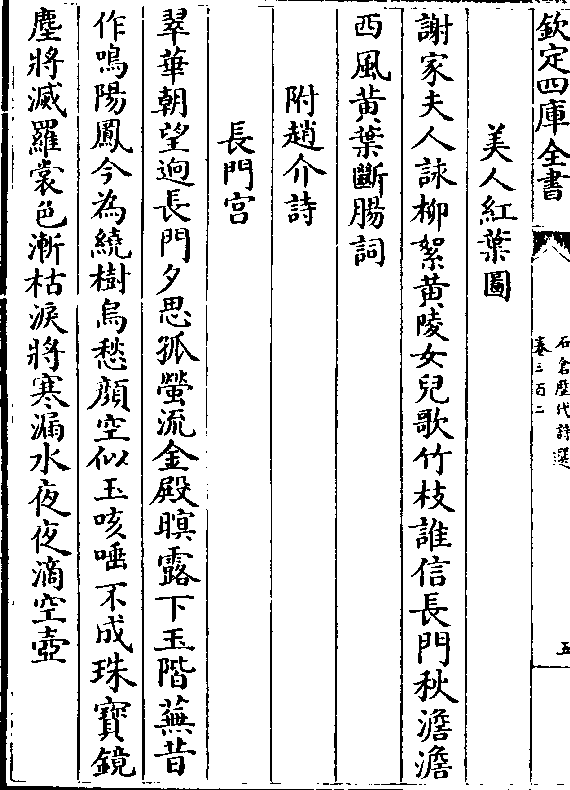 欽定四庫全書
石倉歷代詩選
卷三百二
五
美人紅葉圖
謝家夫人詠柳絮黃陵女兒歌竹枝誰信長門秋澹澹
西風黃葉斷腸詞
附趙介詩
長門宮
翠華朝望迥長門夕思孤螢流金殿暝露下玉階蕪昔
作鳴陽鳳今為繞樹烏愁顏空似玉咳唾不成珠寶鏡
塵將滅羅裳色漸枯淚將寒漏水夜夜滴空壺